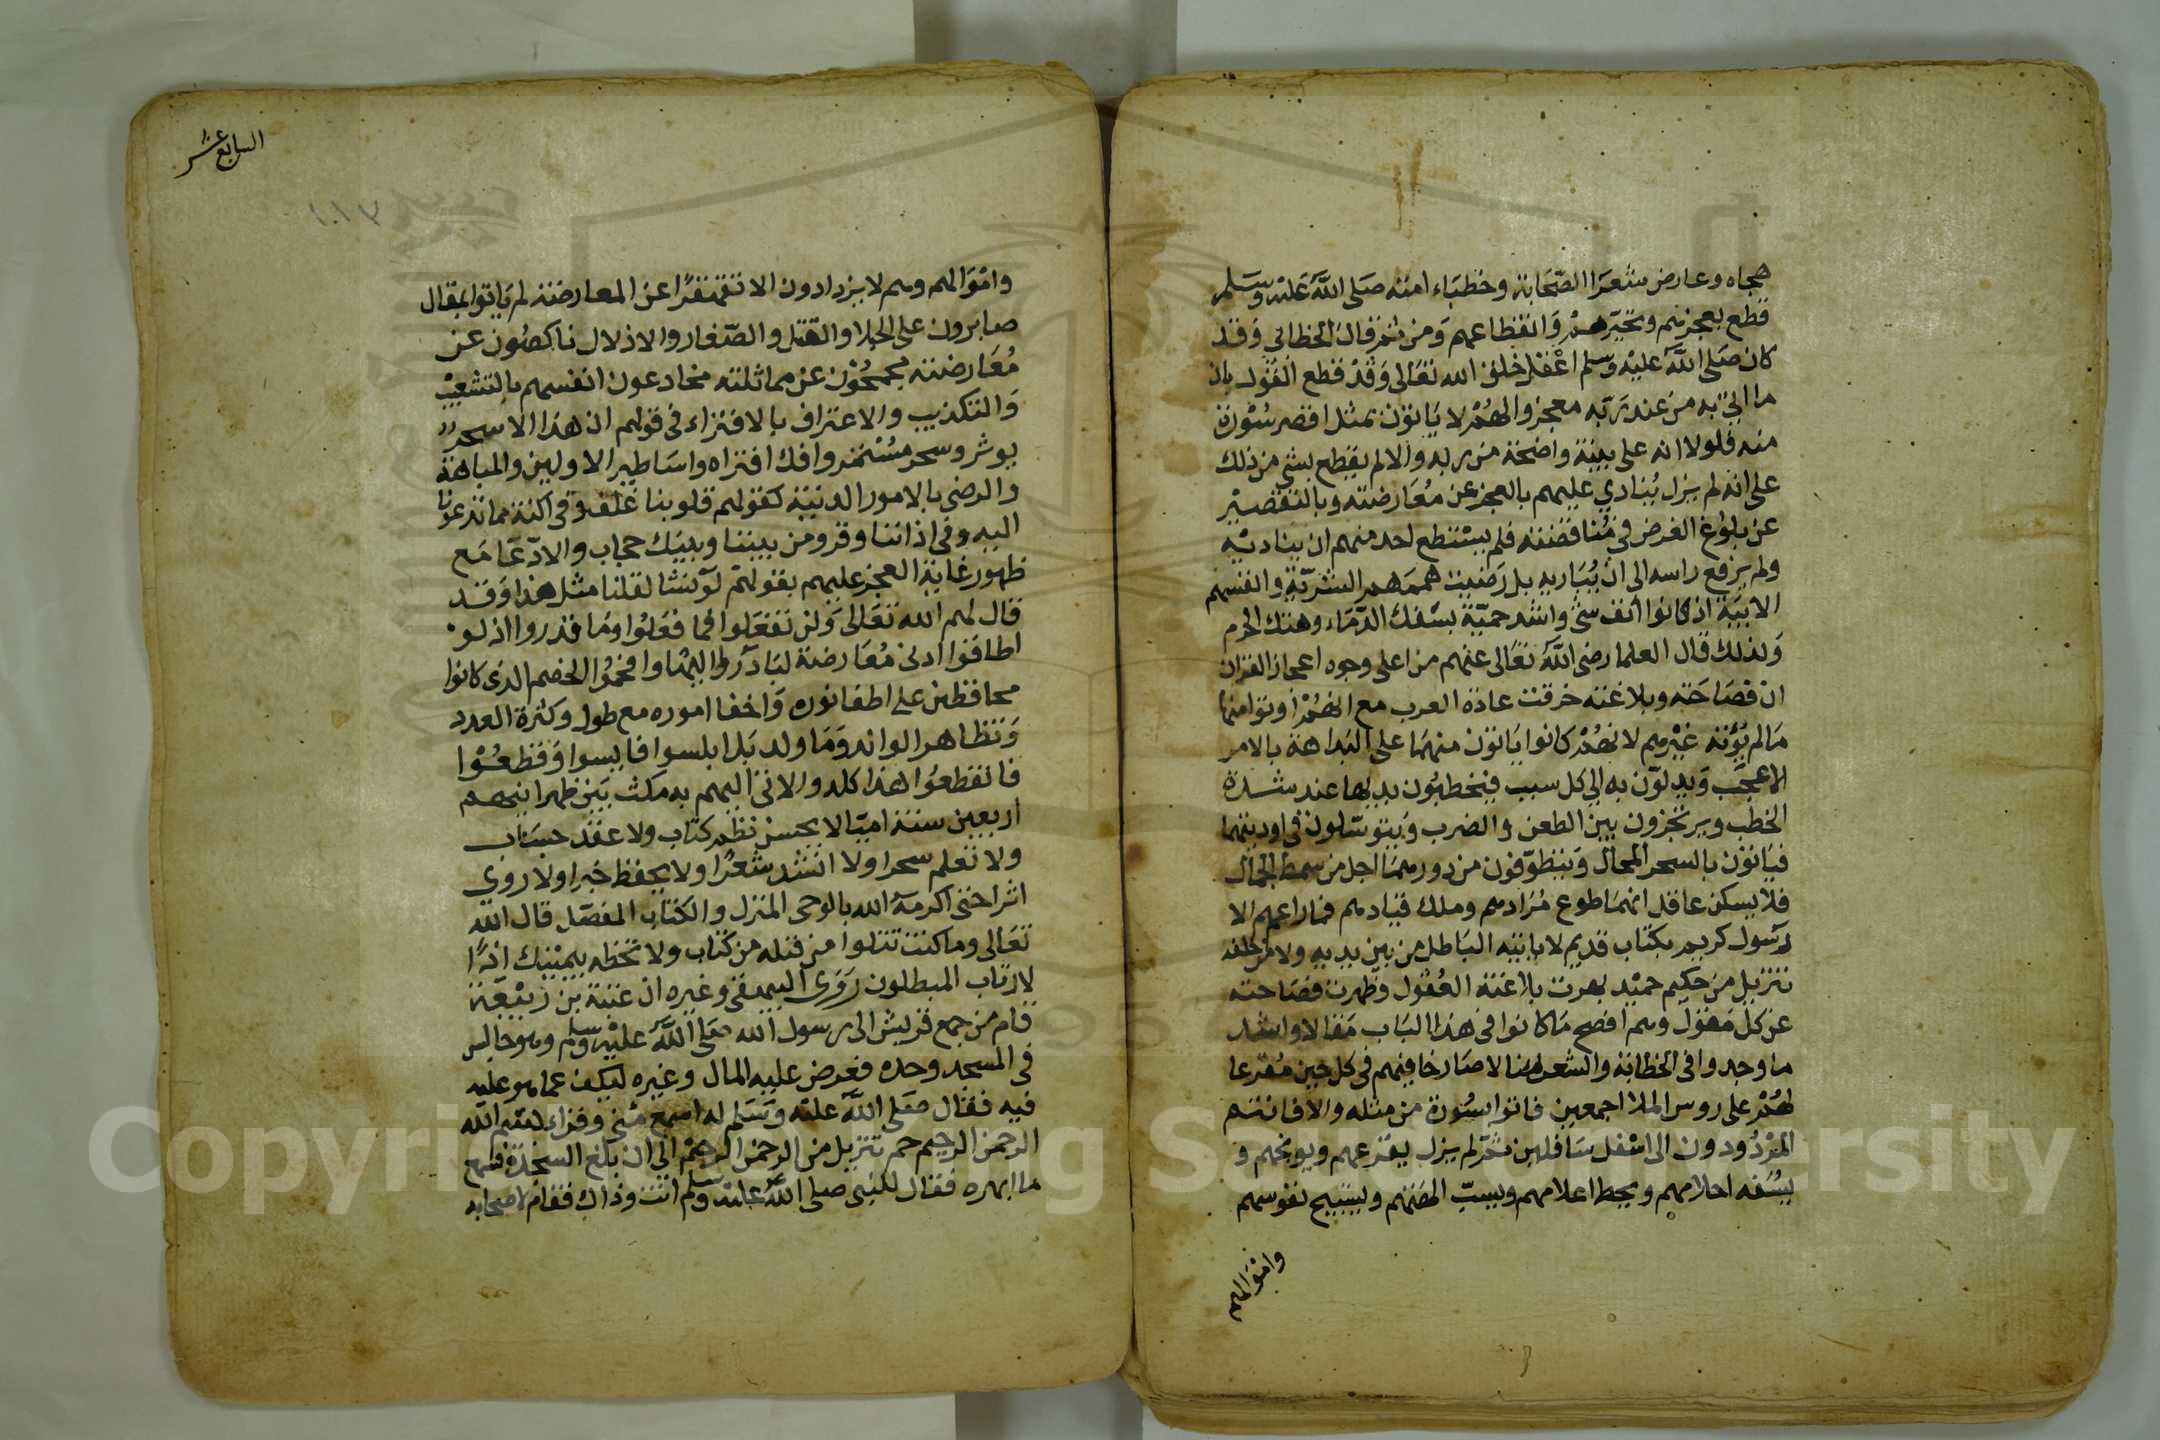 هجاه وعارض شعرا الصحابة وخطباء امته صلى الله عليه وسلم
قطع بعجزهم وتحيرهم وانقطاعهم ومن ثم قال الخطابي وقد
كان صلى الله عليه وسلم اعقل خلق الله تعالى وقد قطع القول بان
ما اتي به من عند ربه معجز وانهم لا ياتون بمثل اقصر سورة
منه فلولا انه على بينة واضحة من ربه والا لم يقطع بشي من ذلك
على انه لم يزل ينادي عليهم بالعجز عن معارضته وبالتقصير
عن بلوغ الغرض في مناقضته فلم يستطع احد منهم ان يناديه
ولم يرفع راسه الى ان يباريه بل رضيت هممهم السرية وانفسهم
الابية اذ كانوا انف شي واشد حمية بسفك الدماء وهتك الحرم
ولذلك قال العلما رضى الله تعالى عنهم من اعلى وجوه اعجاز القران
ان فصاحته وبلاغته خرقت عادة العرب مع انهم اوتوا منها
مالم يؤته غيرهم لانهم كانوا ياتون منهما على البداهة بالامر
الاعجب ويدلون به الي كل سبب فيخطبون بديها عند شدة
الخطب ويرتجزون بين الطعن والضرب ويتوسلون في اوديتهما
فياتون بالسحر المحال ويتطوقون من دررهما اجل من سمط اللال
فلا يسكن عاقل انهما طوع مرادهم وملك قيادهم فما راعهم الا
رسول كريم بكتاب قديم لا ياتيه الباطل من بين يديه ولا من خلفه
تنزيل من حكيم حميد بهرت بلاغته العقول وظهرت فصاحته
عن كل مقول وهم افصح ما كانوا في هذا الباب مقالا واشد
ما وجدوا في الخطابة والشعر الا صارخا فيهم في كل حين مقرعا
لهم على روس الملا اجمعين فاتوا بسورة من مثله والا فانتم
المردودون الى اسفل سافلين ثم لم يزل يقرعهم ويوبخهم و
يسفه احلامهم ويحط اعلامهم ويسب الهتهم ويستبيح نفوسهم
واموالهم
السابع عشر
١٨٣
واموالهم وهم لا يزدادون الا تقهقرا عن المعارضة لم ياتوا بمقال
صابرون على الجلا والقتل والصغار والاذلال ناكصون عن
معارضته محجمون عن مماثلته مخادعون انفسهم بالتشغيب
والتكذيب والاعتراف بالافتراء في قولهم ان هذا الا سحر
يوثر وسحر مستمر وافك افتراه واساطير الاولين والمباهتة
والرضى بالامور الدنيية كقولهم قلوبنا غلف وفي اكنة مما تدعونا
اليه وفي اذاننا وقر ومن بيننا وبينك حجاب والادعا مع
ظهور غاية العجز عليهم بقولهم لو نشا لقلنا مثل هذا وقد
قال لهم الله تعالى ولن تفعلوا فما فعلوا وما قدروا اذ لو
اطاقوا ادنى معارضة لبادروا اليها وافحموا الخصم الذي كانوا
محافظين على اطفا نوره واخفا اموره مع طول وكثرة العدد
وتظاهر الوالد وما ولد بل ابلسوا فايسوا وقطعوا
فانقطعوا هذا كله والاتى اليهم به مكث بين ظهرانيهم
اربعين سنة اميا لا يحسن نظم كتاب ولا عقد حساب
ولا تعلم سحرا ولا انشد شعرا ولا يحفظ خبرا ولا روي
اثرا حتى اكرمه الله بالوحى المنزل والكتاب المفصل قال الله
تعالى وما كنت تتلوا من قبله من كتاب ولا تخطه بيمينك اذا
لارتاب المبطلون روى البيهقى وغيره ان عتبة بن ربيعة
قام من جمع قريش الى رسول الله صلى الله عليه وسلم وهو جالس
في المسجد وحده فعرض عليه المال وغيره ليكف عما هو عليه
فيه فقال صلى الله عليه وسلم له اسمع مني وقراء بسم الله
الرحمن الرحيم حم تنزيل من الرحمن الرحيم الى ان بلغ السجدة فسمع
ما ابهره فقال للنبى صلى الله عليه وسلم انت وذاك فقام لاصحابه
Copyri g Sa ersity